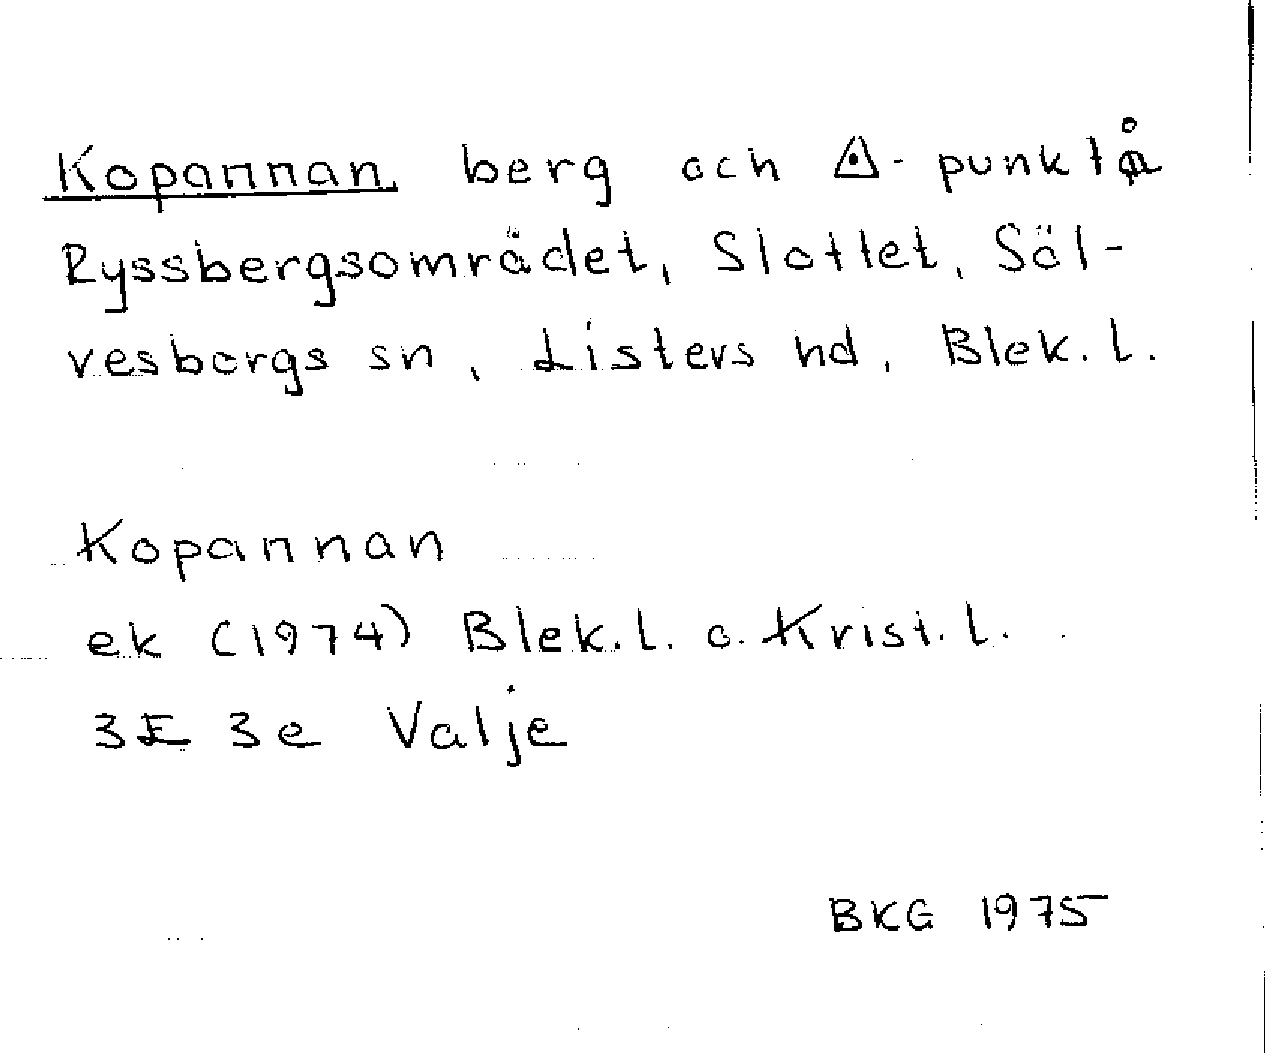 Kopannan, berg och ⟁-punkt å
Ryssbergsområdet, Slottet, Söl-
vesborgs sn, Listers hd, Blek.l.
Kopannan
ek (1974) Blek.l. o. Krist.l.
3E 3e Valje
BKG 1975